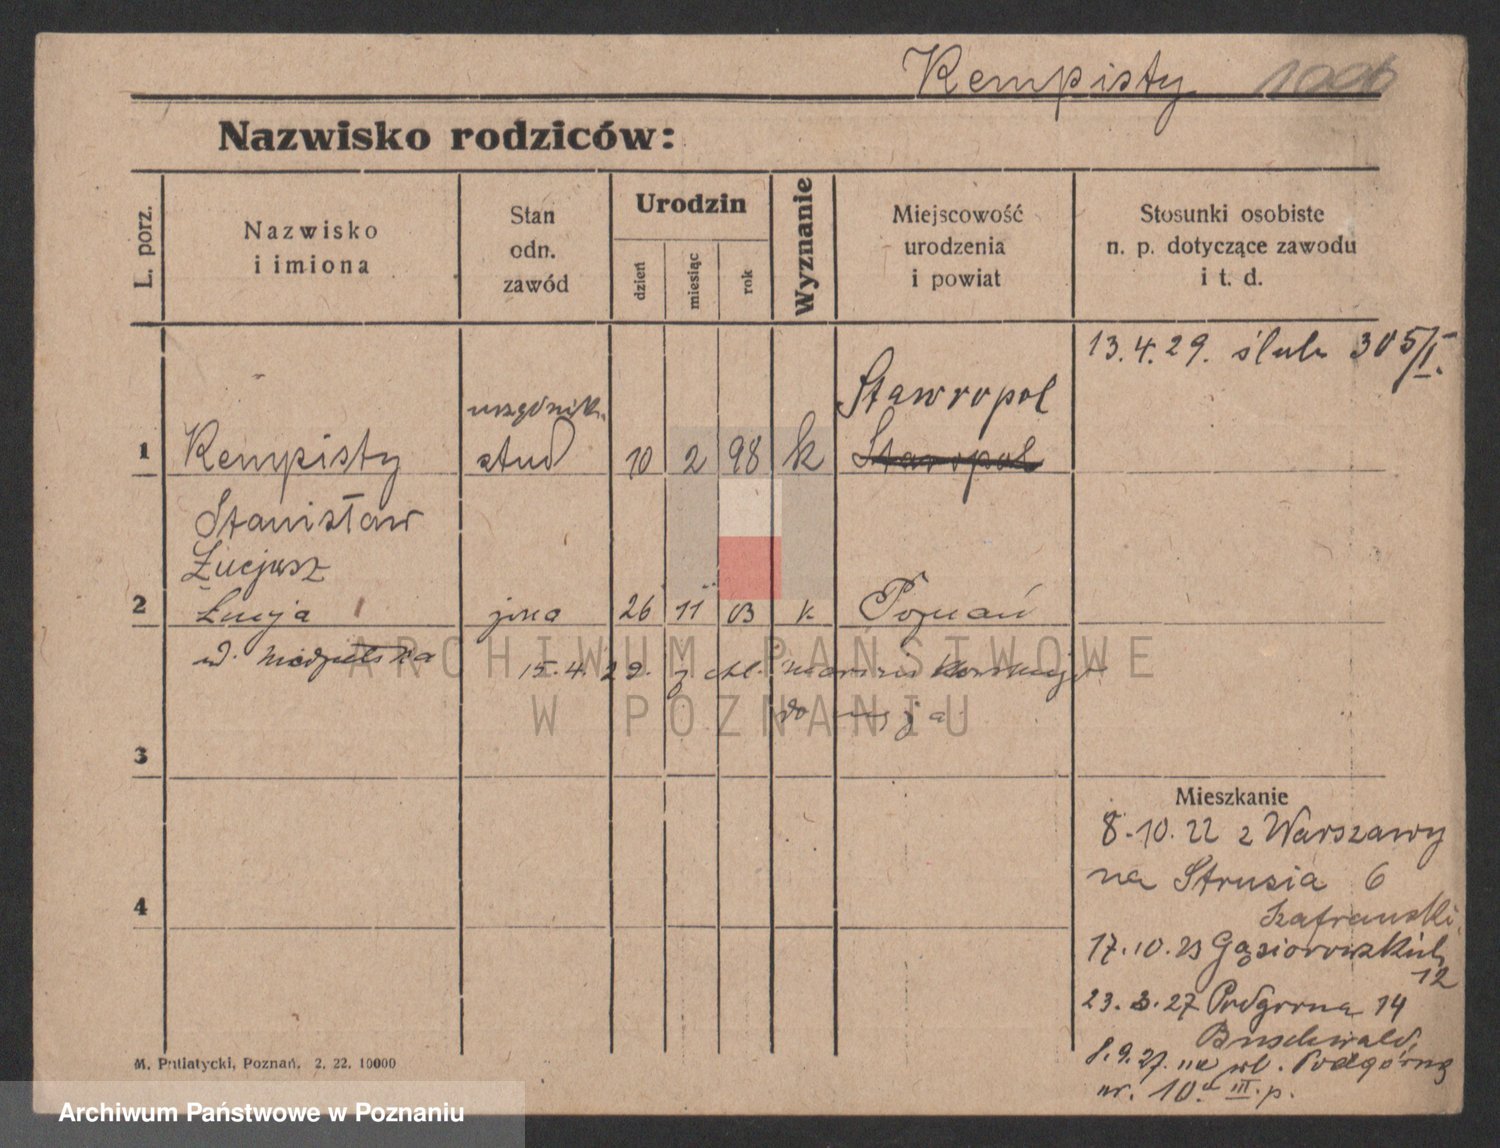 Kempisty
Nazwisko rodziców:
L. porz.
Nazwisko
i imiona
Stan
odn.
zawód
Urodzin
dzień
miesiąc
rok
Wyznanie
Miejscowość
urodzenia
i powiat
Stosunki osobiste
n. p. dotyczące zawodu
i t. d.
13.4.29. ślub 305/I.
urzędnik
Stawropol
1 Kempisty stud 10 2 98 k Staropol
Stanisław
Łucjusz
2 Łucja żona 26 11 03 k Poznań
ur.
15.4.29.
do
3
Mieszkanie
8.10.22 z Warszawy
na Strusia 6
Szafranski
4
17.10.23 Gąsiorowskich
12
23.3.27 Podgorna 14
Buschwald,
8.9.27. na wł. Podgórną
nr. 10.a III. p.
M. Putiatycki, Poznań. 2. 22. 10000
ARCHIWUM PAŃSTWOWE
W POZNANIU
Archiwum Państwowe w Poznaniu